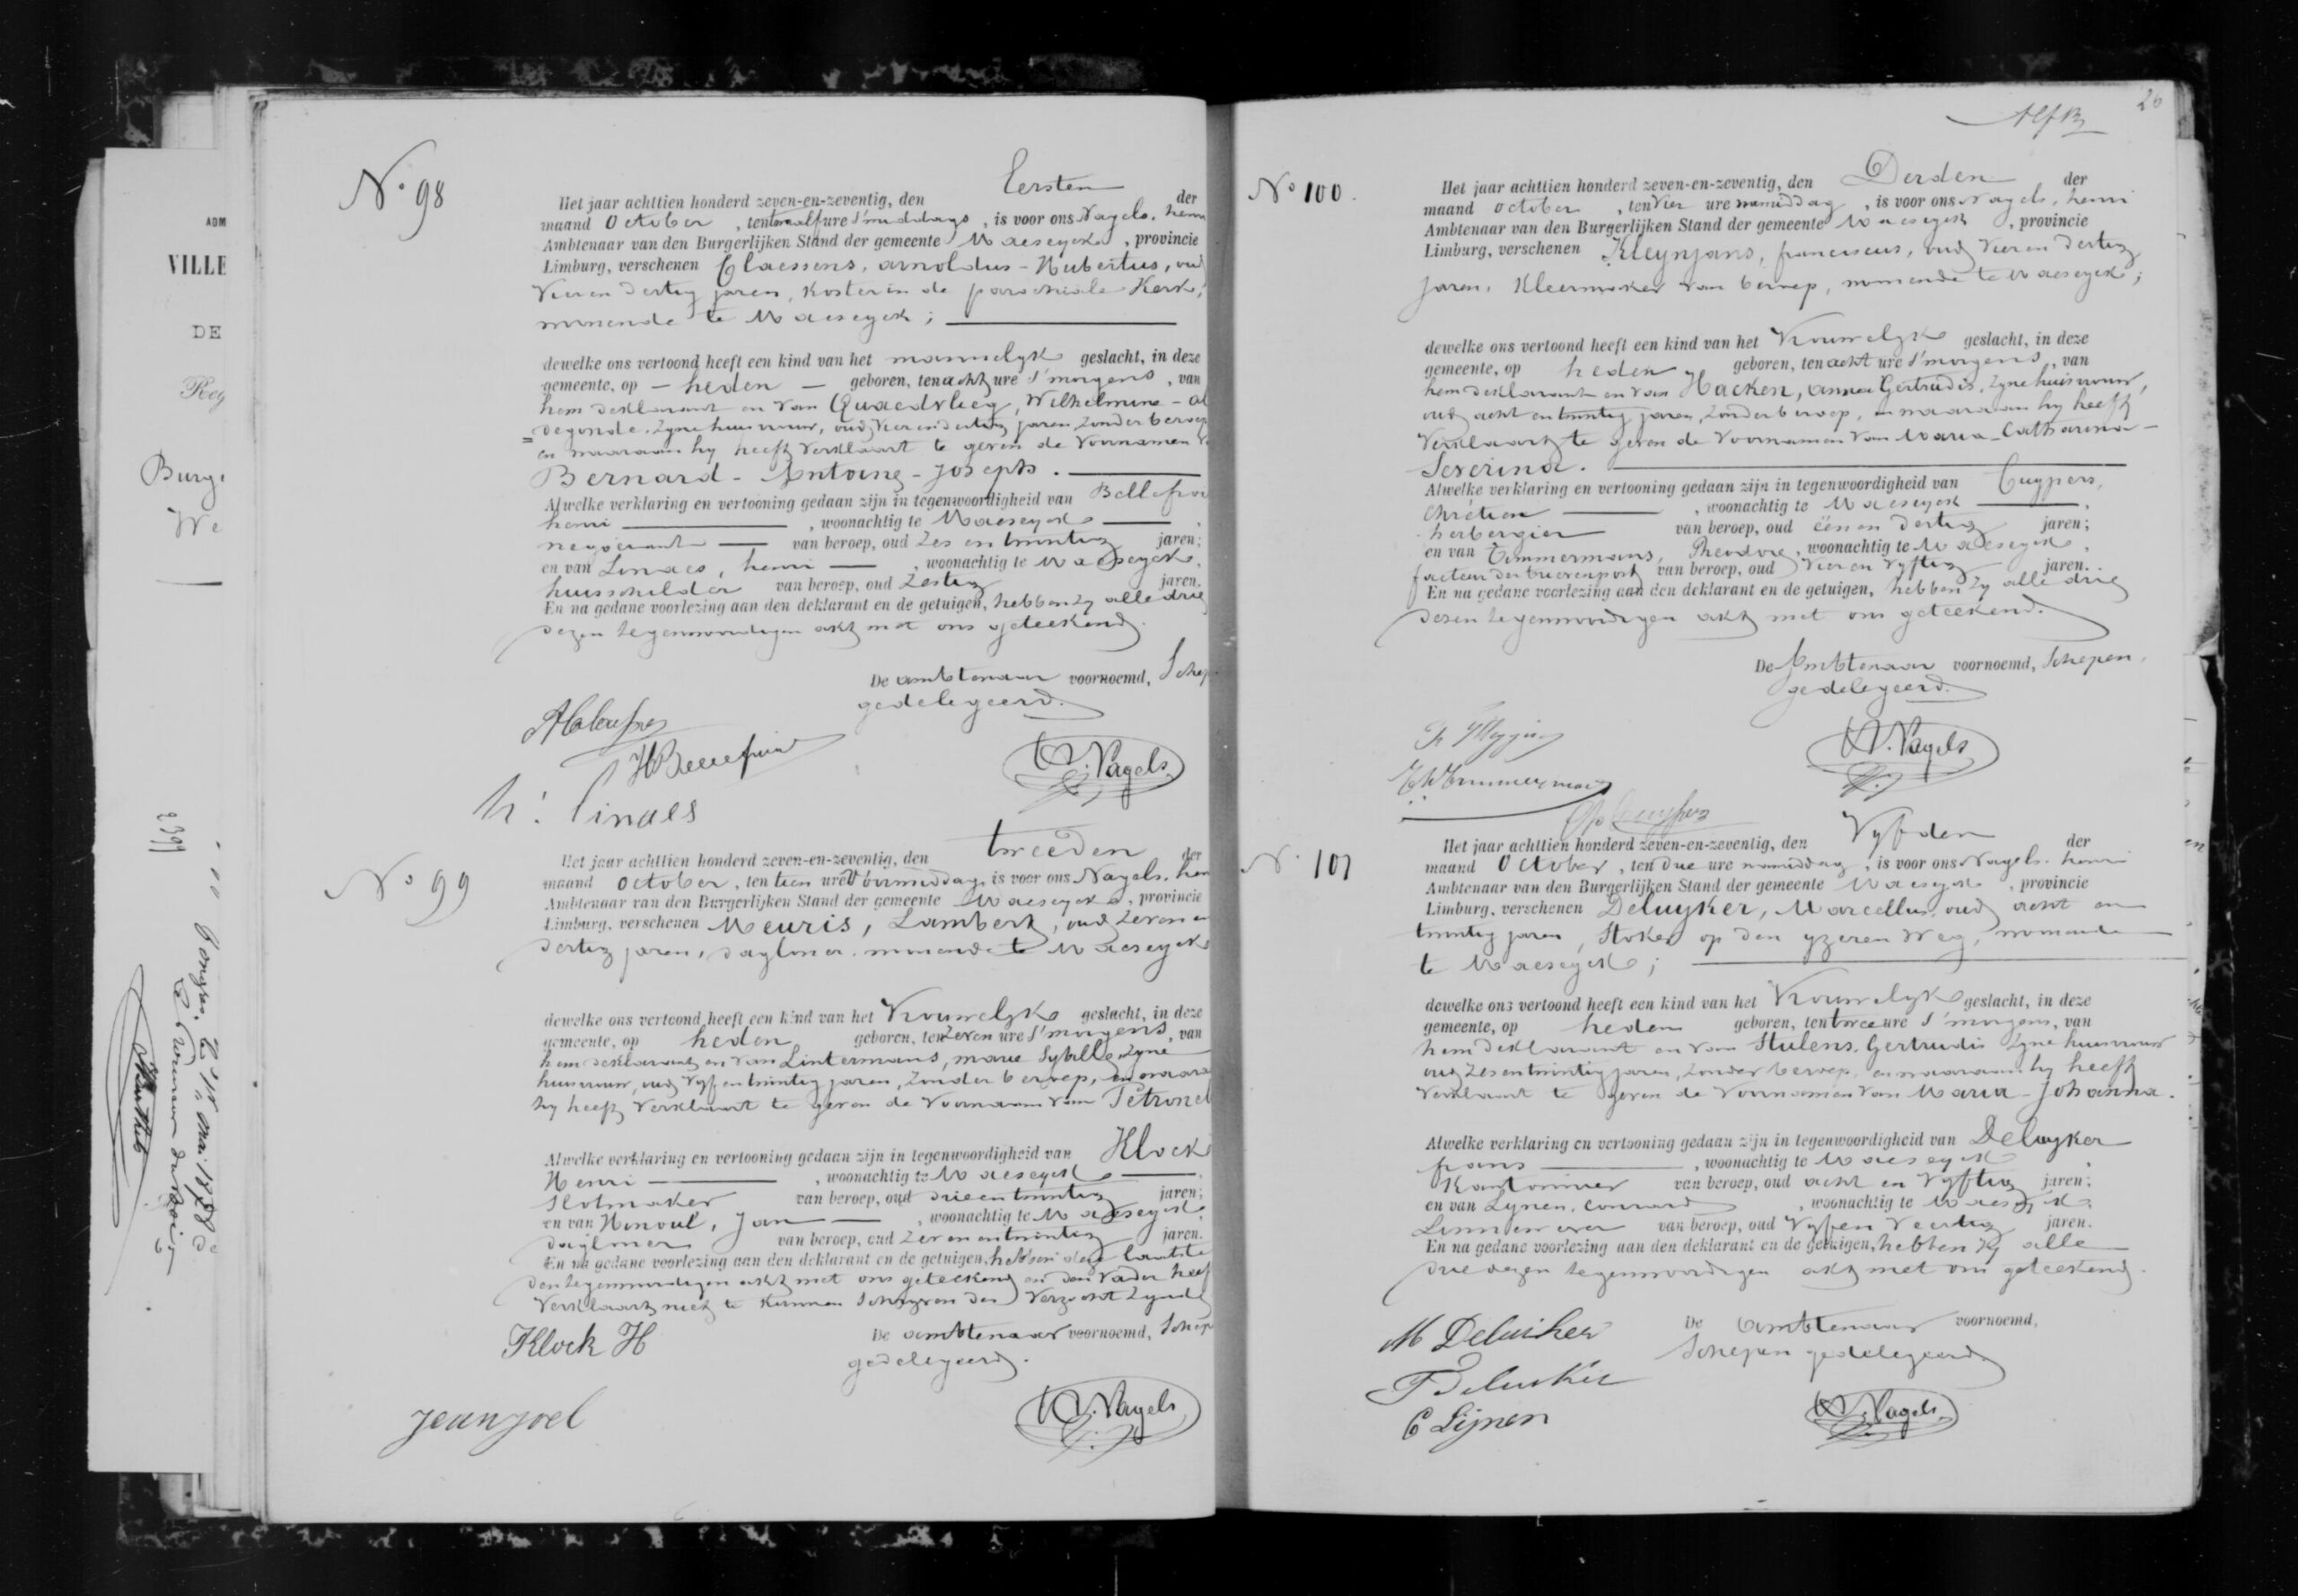 ADM
VILLE
DE
Reg
Burg
We
2399
N° 98
Eersten
Het jaar achttien honderd zeven-en-zeventig, den der
maand October, ten twaalf ure s'middags, is voor ons Nagels, henri
Ambtenaar van den Burgerlijken Stand der gemeente Maeseyck, provincie
Limburg, verschenen Claessens, arnoldus-Hubertus, oud
Vier en dertig jaren, Koster in de parochiale Kerk,
wonende te Maeseyck;
dewelke ons vertoond heeft een kind van het mannelyk geslacht, in deze
gemeente, op - heden - geboren, ten acht ure s'morgens, van
hem deklarant en van Quaedvlieg, Wilhelmine - al
degonde, zyne huisvrouw, oud vier en dertig jaren, zonder beroep
en waaraan hy heeft verklaart te geven de voornamen
Bernard - Antoine - Joseph.
Alwelke verklaring en vertooning gedaan zijn in tegenwoordigheid van Bellefroi
henri, woonachtig te Maeseyck
negociant van beroep, oud zes en twintig jaren;
en van Linaes, henri, woonachtig te Maeseyck,
huisschilder van beroep, oud zestig jaren.
En na gedane voorlezing aan den deklarant en de getuigen, hebben zy alle drie
dezen tegenwoordigen akt met ons geteekend.
De ambtenaar voornoemd, Schep
gedelegeerd.
H. Nagels
h. Linaes
N° 99
tweeden
Het jaar achttien honderd zeven-en-zeventig, den der
maand October, ten tien ure voormiddag, is voor ons Nagels, hen
Ambtenaar van den Burgerlijken Stand der gemeente Maeseyck, provincie
Limburg, verschenen Meuris, Lambert, oud zeven en
dertig jaren, dagloner, wonende te Maeseyck
dewelke ons vertoond heeft een kind van het Vrouwelyk geslacht, in deze
gemeente, op heden geboren, ten zeven ure s'morgens, van
hem deklarant en van Lintermans, marie Sybille, zyne
huisvrouw, oud vyf en twintig jaren, zonder beroep, en waara
hy heeft verklaart te geven de voornaam van Petronel
Alwelke verklaring en vertooning gedaan zijn in tegenwoordigheid van Klock
Henri, woonachtig te Maeseyck
Slotmaker van beroep, oud drie en twintig jaren;
en van Henoul, Jan, woonachtig te Maeseyck
dagloner van beroep, oud zeven en twintig jaren.
En na gedane voorlezing aan den deklarant en de getuigen, hebben deze laatste
den tegenwoordigen akt met ons geteekend en den vader heef
verklaart niet te kunnen schryven des verzocht zynde
De ambtenaar voornoemd, Schep
gedelegeerd.
Klock H
H. Nagels
26
N° 100.
Derden
Het jaar achttien honderd zeven-en-zeventig, den der
maand October, ten vier ure namiddag, is voor ons Nagels, henri
Ambtenaar van den Burgerlijken Stand der gemeente Maeseyck, provincie
Limburg, verschenen Kleynjans, franciscus, oud vier en dertig
jaren, Kleermaker van beroep, wonende te Maeseyck;
dewelke ons vertoond heeft een kind van het Vrouwelyk geslacht, in deze
gemeente, op heden geboren, ten acht ure s'morgens, van
hem deklarant en van Hacken, anna Gertrudis, zyne huisvrouw,
oud acht en twintig jaren, zonder beroep, en waaraan hy heeft
verklaart te geven de voornamen van Maria-Catharina-
Severina.
Alwelke verklaring en vertooning gedaan zijn in tegenwoordigheid van Cuypers,
Chrétien, woonachtig te Maeseyck,
herbergier van beroep, oud één en dertig jaren;
en van Timmermans, Theodore, woonachtig te Maeseyck,
facteur der brievenpost van beroep, oud vier en vyftig jaren.
En na gedane voorlezing aan den deklarant en de getuigen, hebben zy alle drie
dezen tegenwoordigen akt met ons geteekend.
De Ambtenaar voornoemd, Schepen,
gedelegeerd.
H. Nagels
N° 101
Vyfden
Het jaar achttien honderd zeven-en-zeventig, den der
maand October, ten drie ure namiddag, is voor ons Nagels, henri
Ambtenaar van den Burgerlijken Stand der gemeente Maeseyck, provincie
Limburg, verschenen Deluyker, Marcellus, oud acht en
twintig jaren, Stoker op den yzeren Weg, wonende
te Maeseyck;
dewelke ons vertoond heeft een kind van het Vrouwelyk geslacht, in deze
gemeente, op heden geboren, ten twee ure s'morgens, van
hem deklarant en van Stulens, Gertrudis zyne huisvrouw
oud zes en twintig jaren, zonder beroep, en waaraan hy heeft
verklaart te geven de voornamen van Maria-Johanna.
Alwelke verklaring en vertooning gedaan zijn in tegenwoordigheid van Deluyker
frans, woonachtig te Maeseyck,
Kantonnier van beroep, oud acht en vyftig jaren;
en van Lynen, Conrard, woonachtig te Maeseyck,
Linnenwever van beroep, oud vyf en veertig jaren.
En na gedane voorlezing aan den deklarant en de getuigen, hebben zy alle
drie dezen tegenwoordigen akt met ons geteekend.
De Ambtenaar voornoemd,
Schepen gedelegeerd
M Deluiker
F Deluiker
C Lijnen
H. Nagels